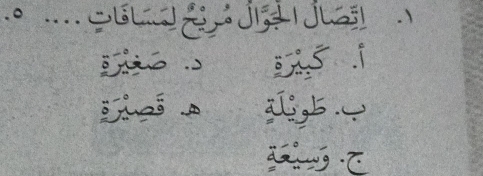 ١. اِتِّصَالُ الْجَوَّالِ مُرِيْحٌ لِمَسَافَاتٍ .... ٥.
أ. كَبِيْرَةٍ د. صَغِيْرَةٍ
ب. طَوِيْلَةٍ هـ. قَصِيْرَةٍ
ج. وَسِيْعَةٍ